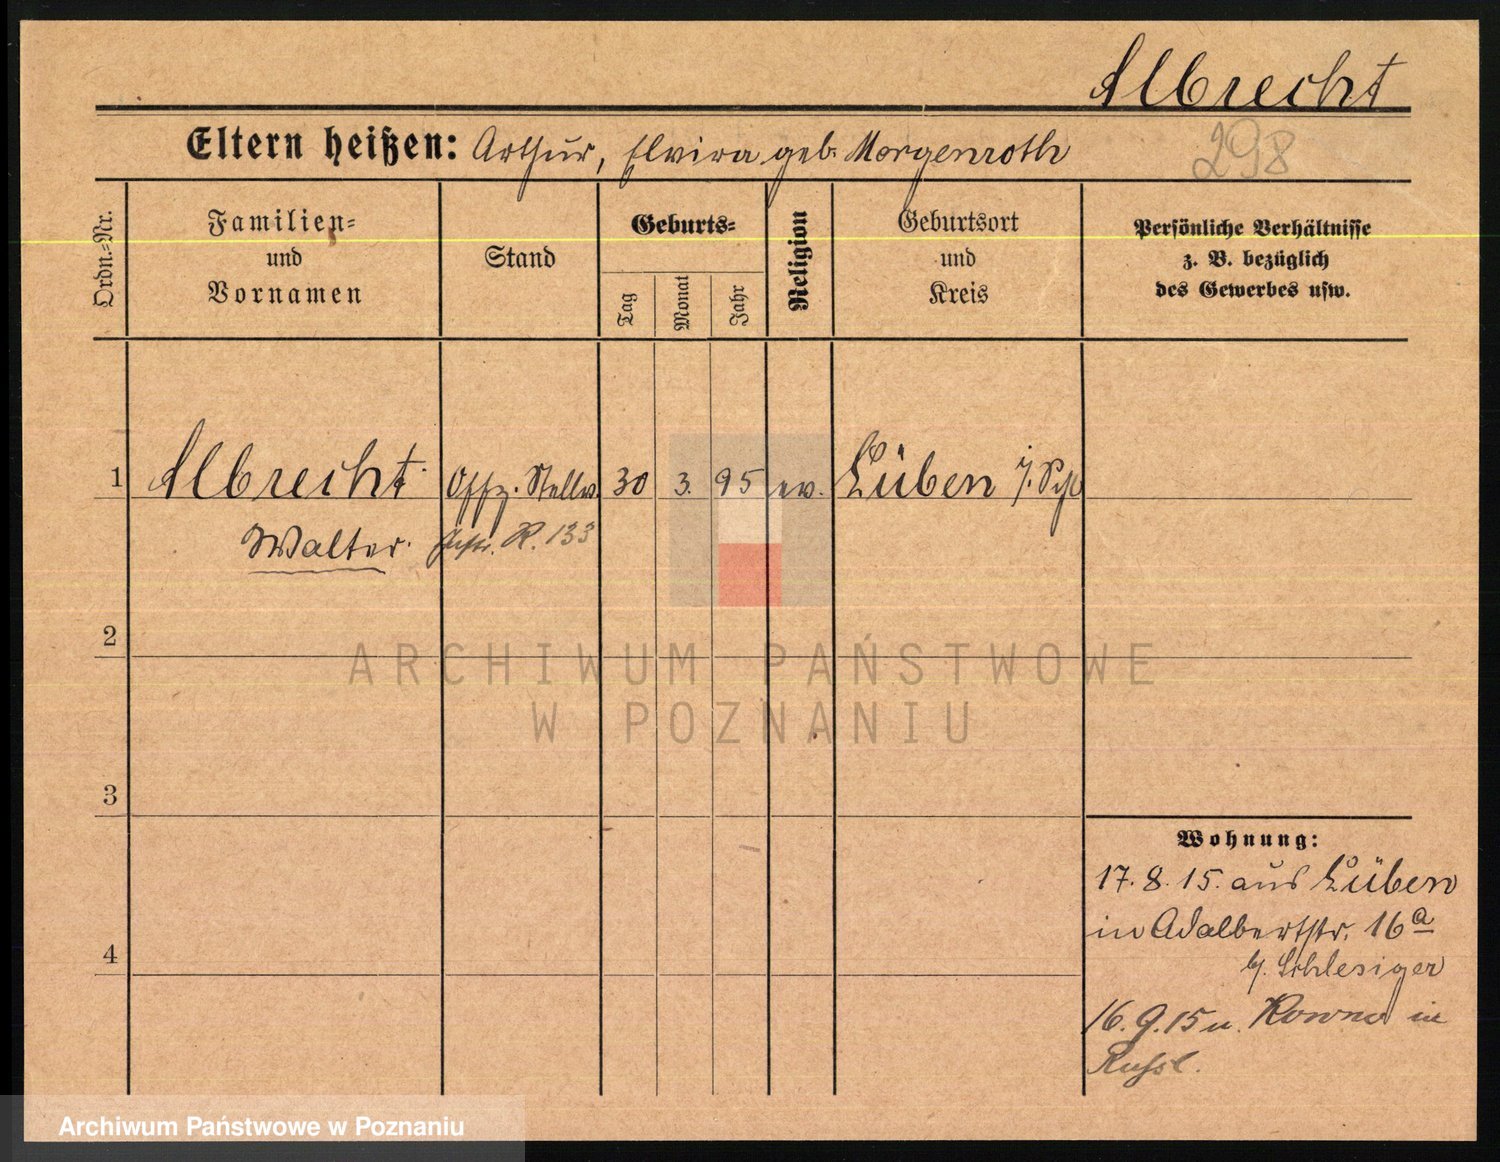 Albrecht
Eltern heißen: Arthur, Elvira geb. Morgenroth
298
Ordn.-Nr.
Familien-
und
Vornamen
Stand
Geburts-
Tag
Monat
Jahr
Religion
Geburtsort
und
Kreis
Persönliche Verhältnisse
z. B. bezüglich
des Gewerbes usw.
1 Albrecht Offz. Stellv. 30 3. 95 ev. Lüben i/. Schl
Walter R. 133
2
ARCHIWUM PAŃSTWOWE
W POZNANIU
3
Wohnung:
17. 8. 15. aus Lüben
in Adalbertstr. 16a
b/. Schlesiger
4
16. 9. 15 n. Kowno in
Russl.
Archiwum Państwowe w Poznaniu